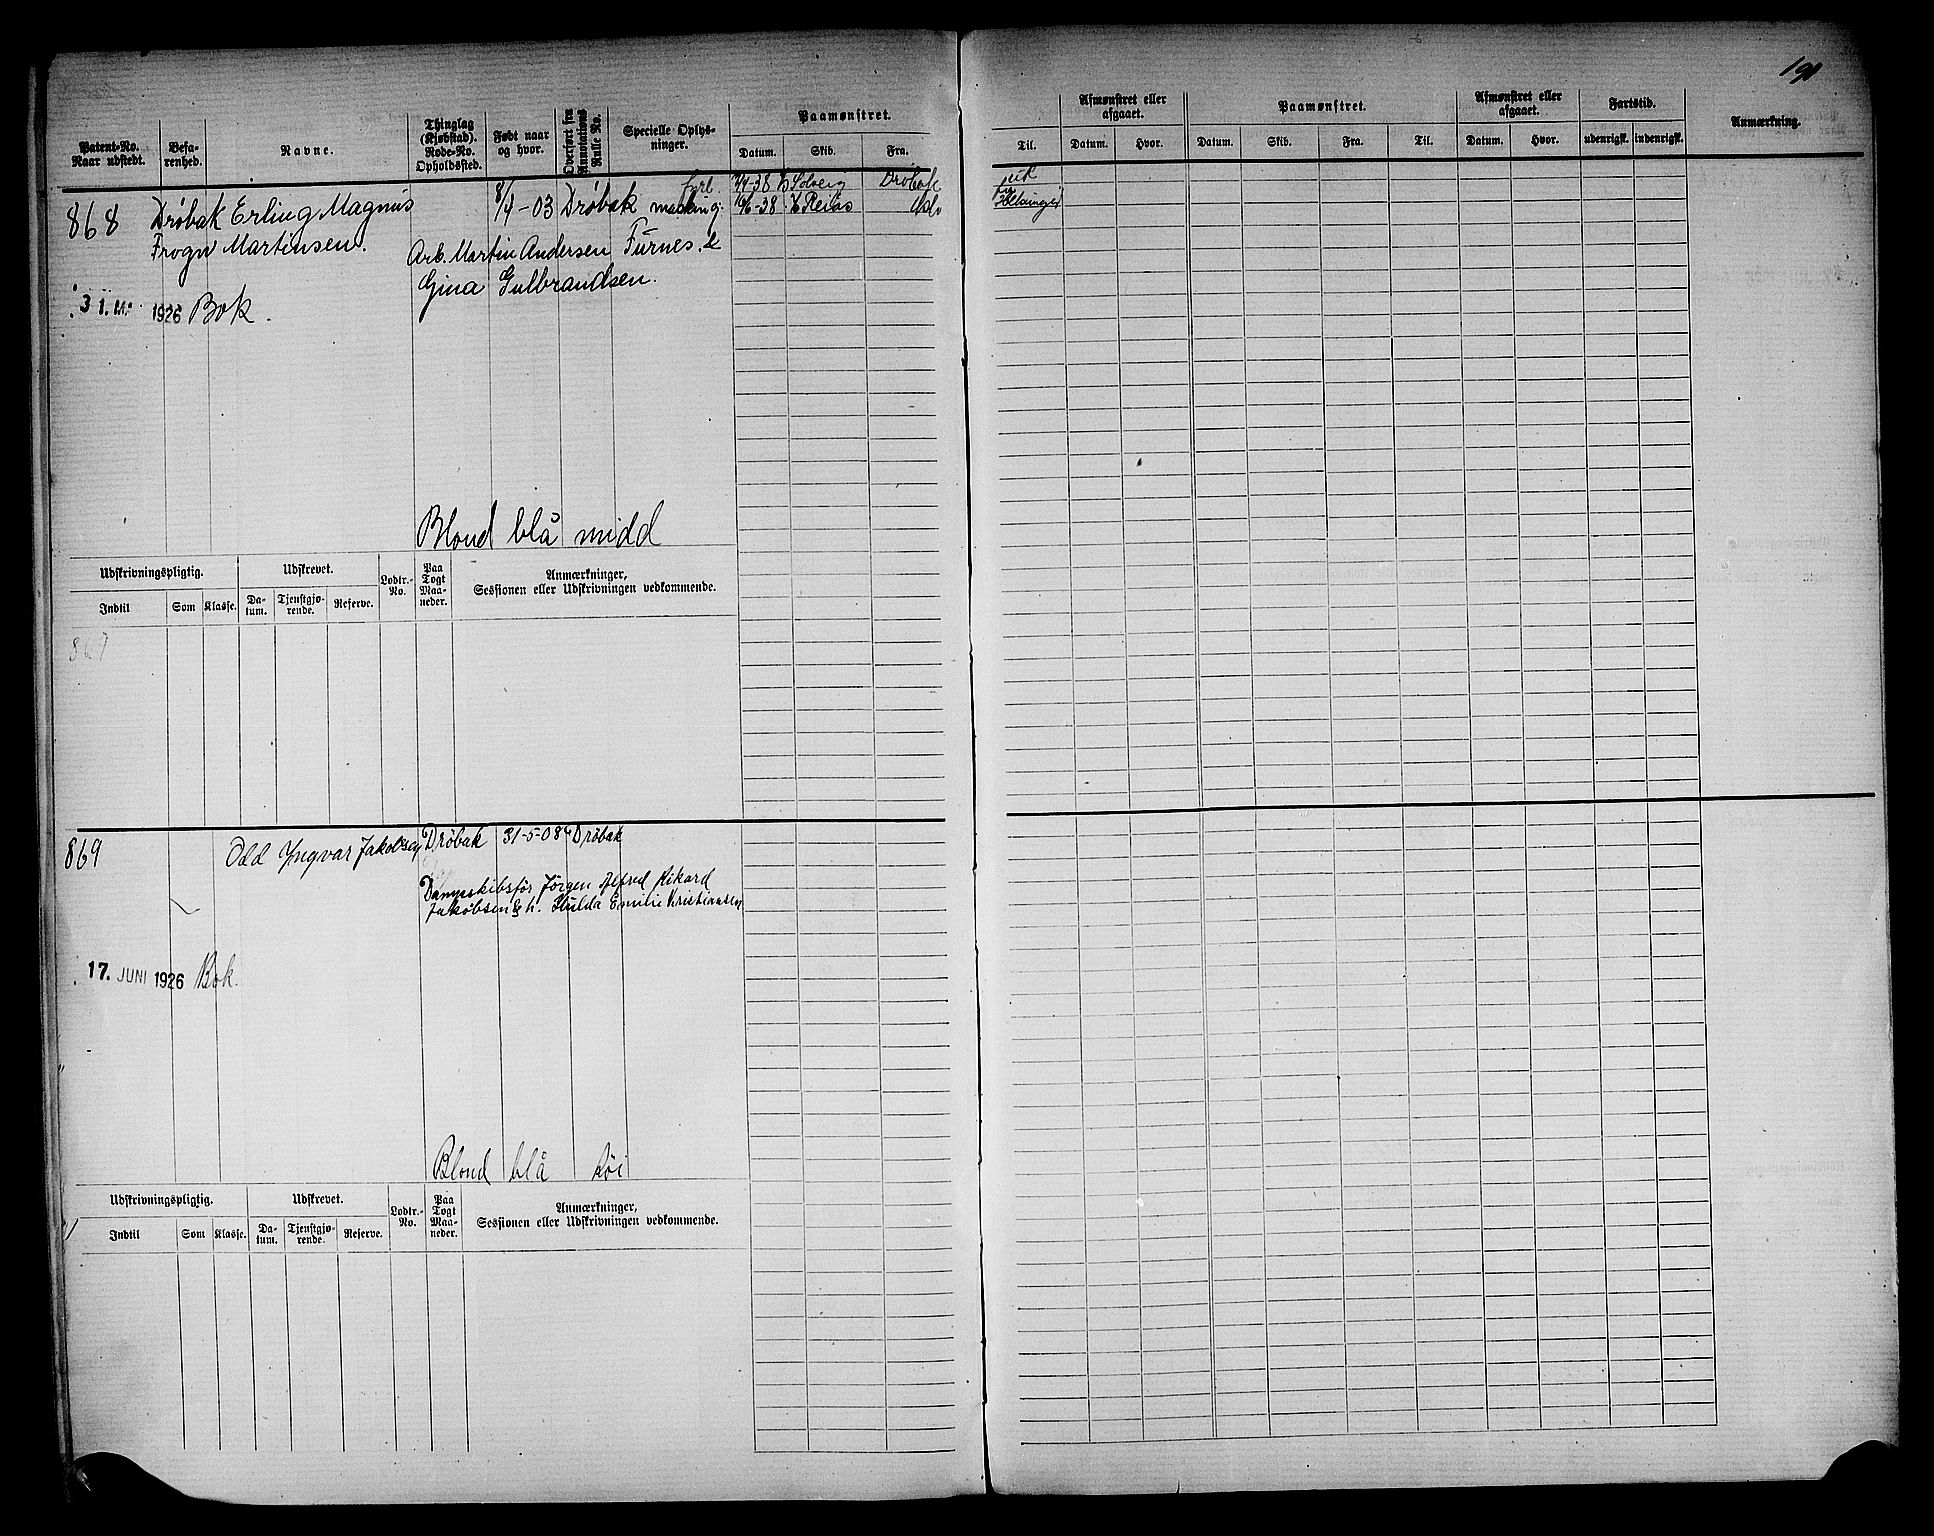 191
Patent-No. Naar udstedt.
Befarenhed.
Navne.
Thinglag (Kjøbstad). Rode-No. Opholdssted.
Født naar og hvor.
Overført fra Annotations Rulle No.
Specielle Oplysninger.
Paamønstret.
Datum. Skib. Fra.
Til.
Afmønstret eller afgaaet.
Datum. Hvor.
Paamønstret.
Datum. Skib. Fra. Til.
Afmønstret eller afgaaet.
Datum. Hvor.
Fartstid.
udenrigsk. indenrigsk.
Anmærkning.
868 Drøbak Erling Magnus 8/4-03 Drøbak
Frogn Martinsen.
Arb. Martin Andersen Furnes. &
Gina Gulbrandsen.
-38 Solveig Drøbak
-38 Oslo
Helsingør
31. 1926 Bok.
Blond blå midd
Udskrivningspligtig. Udskrevet. Lodtr.-No. Paa Togt Maaneder. Anmærkninger, Sessionen eller Udskrivningen vedkommende.
Indtil Som Klasse. Datum. Tjenstgjørende. Reserve.
869
869 Odd Yngvar Jakobsen Drøbak 31-5-08 Drøbak
Dampskibsfør Jörgen Alfred Rikard
Jakobsen & h. Hulda Emilie Kristiansen
17. JUNI 1926 Bok.
Blond blå høi
Udskrivningspligtig. Udskrevet. Lodtr.-No. Paa Togt Maaneder. Anmærkninger, Sessionen eller Udskrivningen vedkommende.
Indtil Som Klasse. Datum. Tjenstgjørende. Reserve.